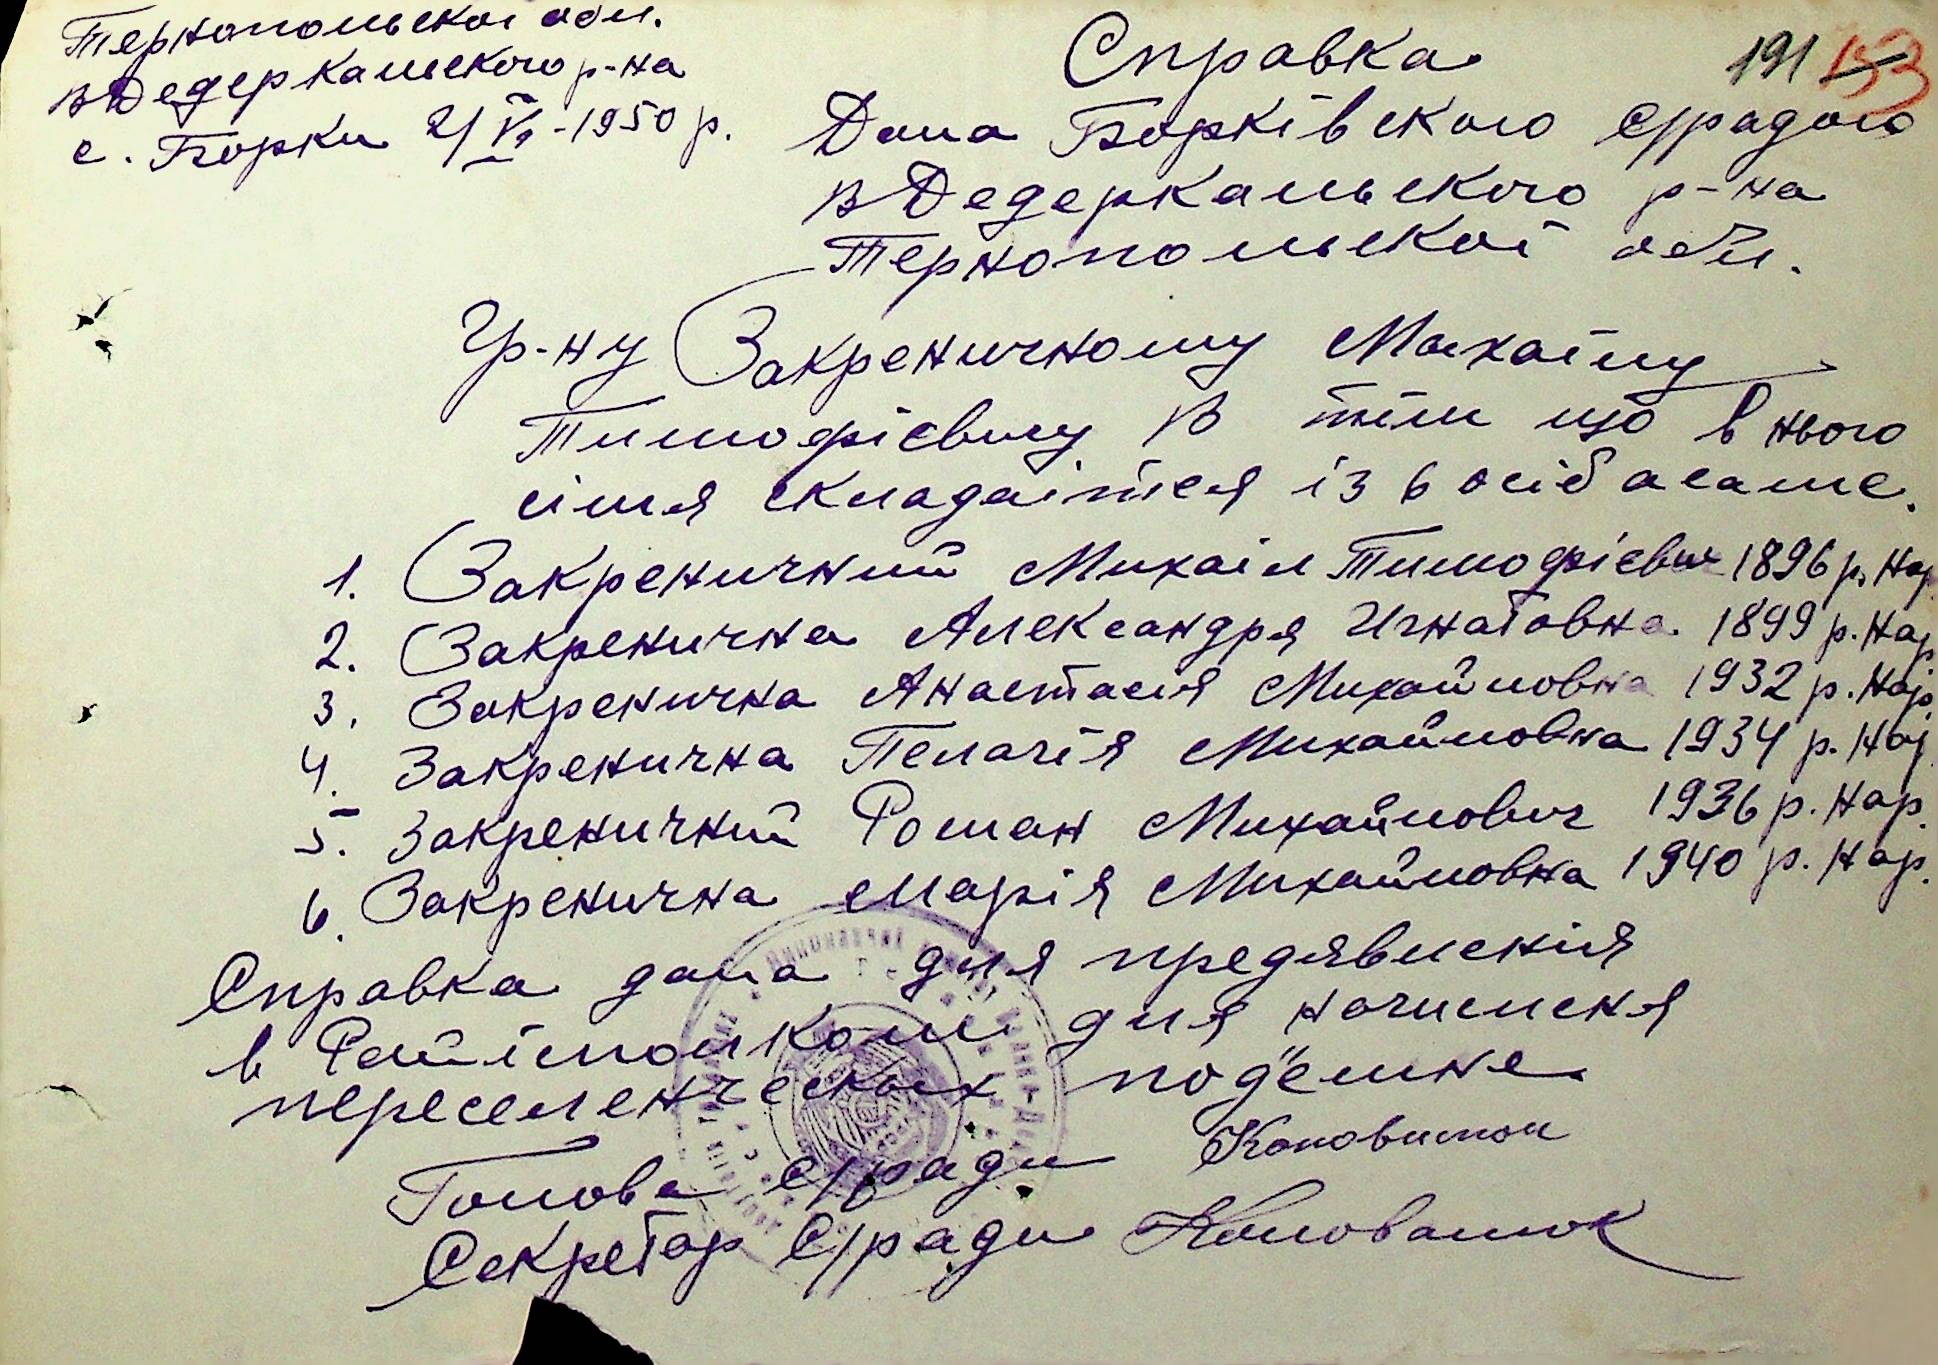 Тернопольскої обл.
вДедеркальского р-на
с. Борки 2/V-1950 р.
191 153
Справка
Дана Борківского с/радою
вДедеркальского р-на
Тернопольскої обл.
Гр-ну Закреничному Михаілу
Тимофієвичу в тім що в нього
сімя складаїтся із 6 осіб асаме.
1. Закреничний Михаіл Тимофієвич 1896 р. нар
2. Закренична Александря Игнатовна 1899 р. нар
3. Закренична Анастасія Михайловна 1932 р. нар
4. Закренична Пелагія Михайловна 1934 р. нар
5. Закреничний Роман Михайлович 1936 р. нар.
6. Закренична Марія Михайловна 1940 р. нар.
Справка дана для предявленія
в Райісполком для начисленя
переселенческих подёмне.
Голова с/ради
Секретар с/ради Коновалюк